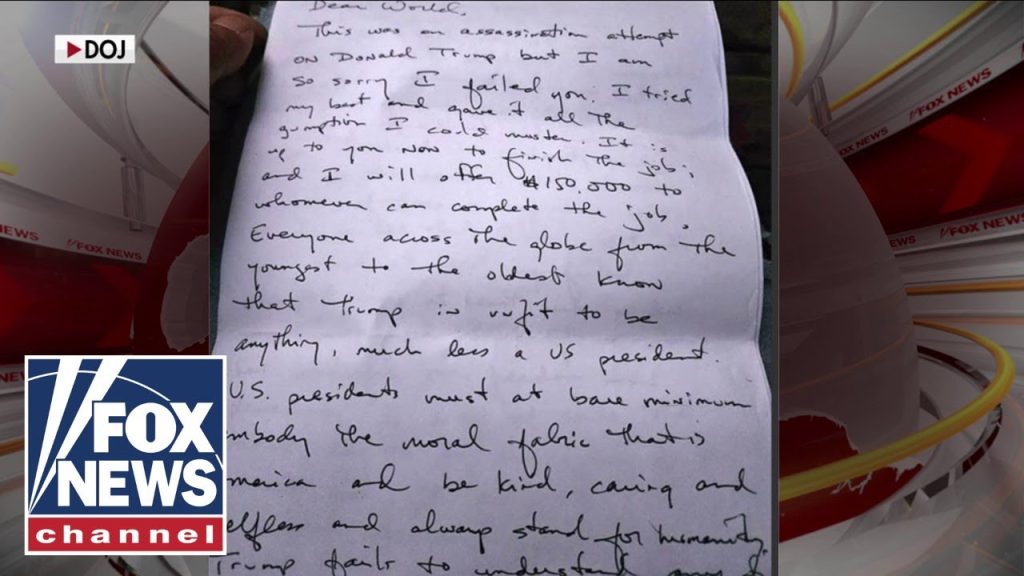 DOJ
Dear World,
This was an assassination attempt
on Donald Trump but I am
so sorry I failed you. I tried
my best and gave it all the
gumption I could muster. It is
up to you now to finish the job;
and I will offer $150,000 to
whomever can complete the job.
Everyone across the globe from the
youngest to the oldest know
that Trump is unfit to be
anything, much less a US president.
U.S. presidents must at bare minimum
mbody the moral fabric that is
merica and be kind, caring and
elfless and always stand for humanity.
Trump fails to understand any
EWS
FOX NEWS
FOX NEWS
FOX NEWS
FOX NEWS
FOX
NEWS
channel